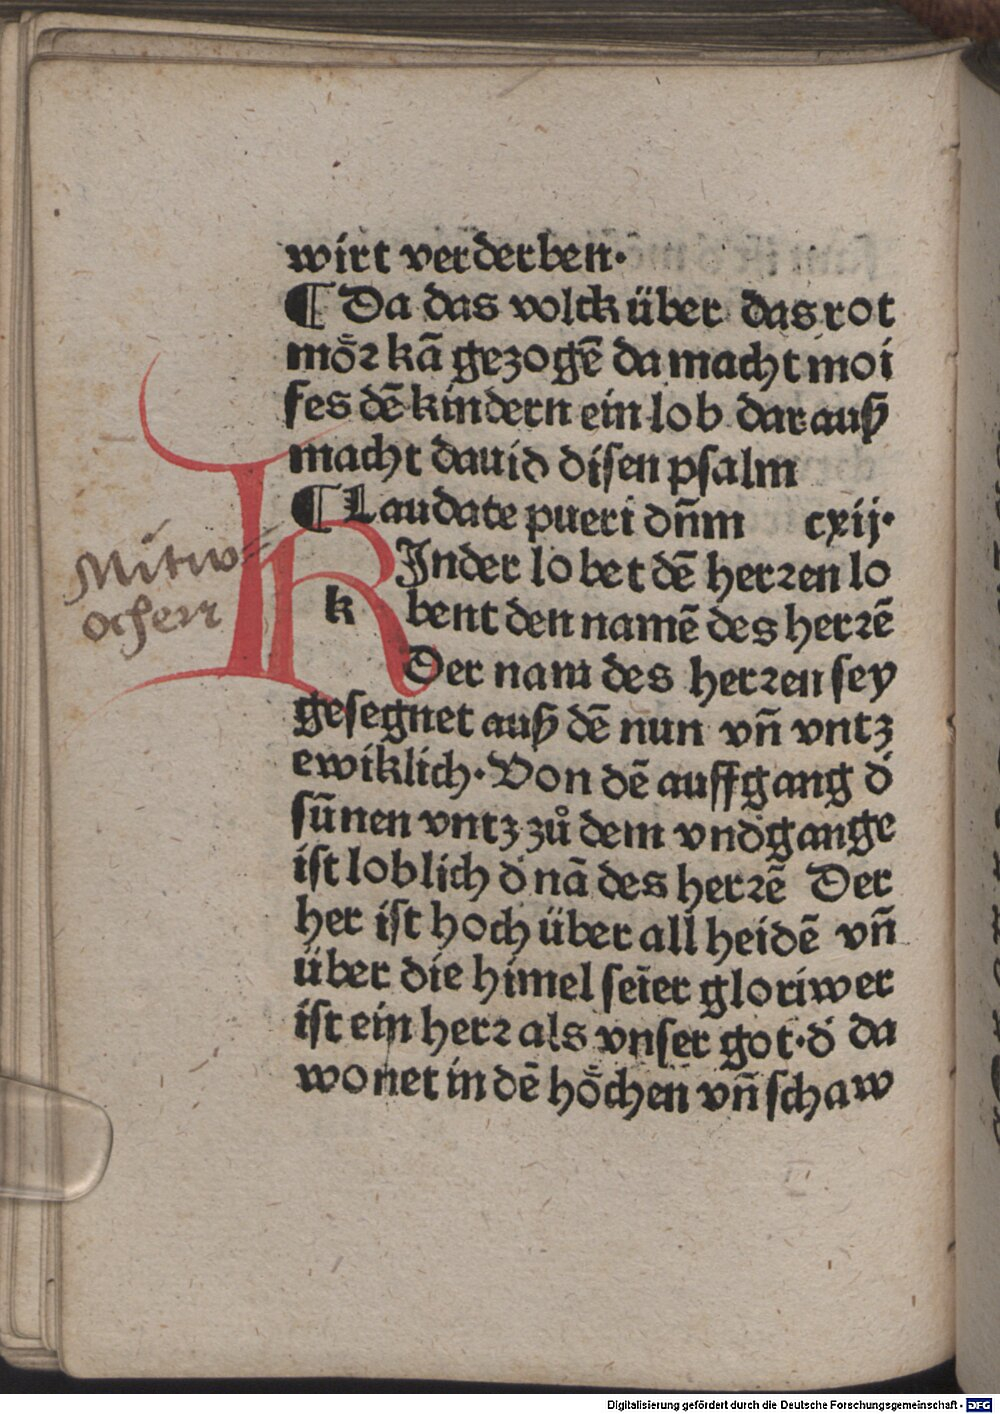 wirt verderben·
¶ Da das volck über das rot
moͤꝛ kā gezogē da macht moi
ses dē kindern ein lob dar auß
macht dauid disen psalm
¶ Laudate pueri dn̄m cxij·
KInder lobet dē herꝛen lo
k bent den namē des herꝛē
Der nam des herꝛen sey
gesegnet auß dē nun vn̄ vntz
ewiklich· Von dē auffgang d̓
sūnen vntz zuͦ dem vndgange
ist loblich d̓ nā des herꝛē Der
her ist hoch über all heidē vn̄
über die himel seīer glori wer
ist ein herꝛ als vnser got· d̓ da
wonet in dē hoͤchen vn̄ schaw
Mitw=
ochenn
Digitalisierung gefördert durch die Deutsche Forschungsgemeinschaft - DFG